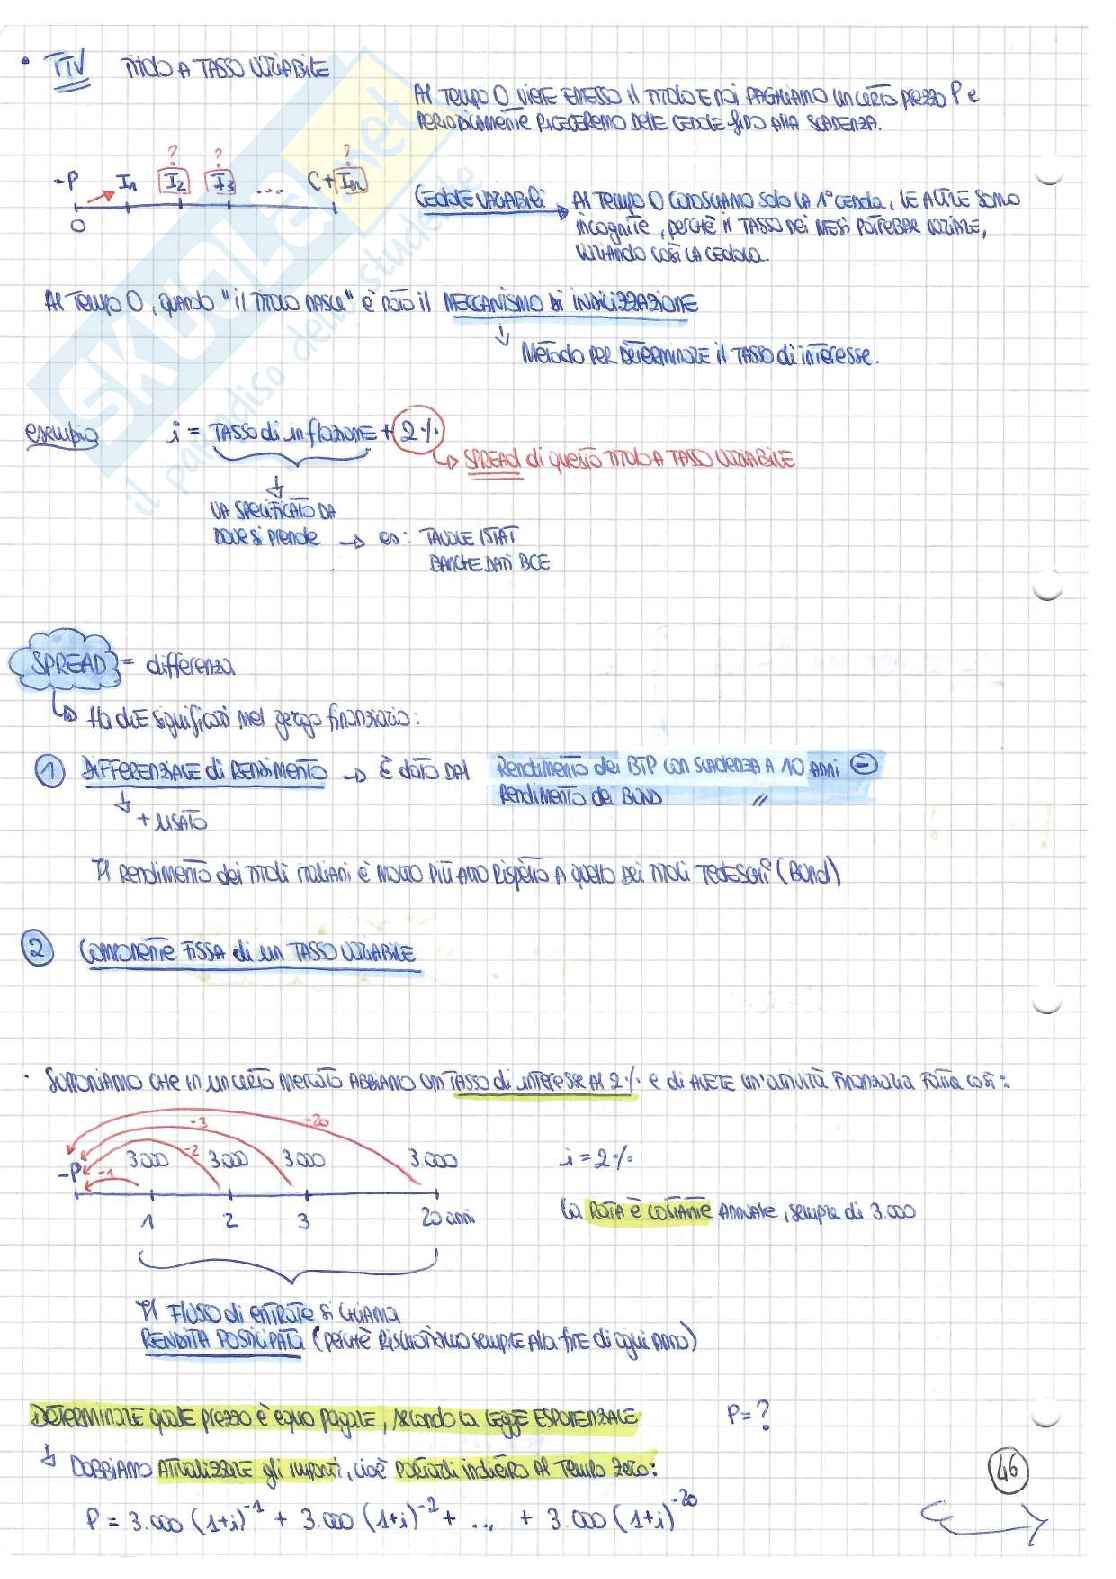 • TTV TITOLO A TASSO VARIABILE
Al TEMPO 0 VIENE EMESSO il TITOLO E NOI PAGHIAMO UN CERTO PREZZO P e
PERIODICAMENTE RICEVEREMO DELLE CEDOLE fino ALLA SCADENZA.
? ? ?
-P I1 I2 I3 .... C+In
0
CEDOLE VARIABILI → Al TEMPO 0 CONOSCIAMO SOLO LA 1° CEDOLA, LE ALTRE SONO
incognite, perchè il TASSO NEI MESI POTREBBE VARIARE,
VARIANDO COSÌ LA CEDOLA.
Al TEMPO 0, quando "il TITOLO NASCE" è NOTO il MECCANISMO DI INDICIZZAZIONE
↳ Metodo PER DETERMINARE il TASSO di interesse.
esempio i = TASSO di inflazione + 2%
↳ SPREAD di questo TITOLO A TASSO VARIABILE
VA SPECIFICATO DA
DOVE si prende → es: TAVOLE ISTAT
BANCHE DATI BCE
SPREAD = differenza
↳ Ha due significati nel gergo finanziario:
1 DIFFERENZIALE di RENDIMENTO → È dato DAL Rendimento dei BTP con scadenza A 10 ANNI −
Rendimento dei BUND "
+ USATO
Il RENDIMENTO dei titoli italiani è MOLTO PIÙ ALTO RISPETTO A quello DEI TITOLI TEDESCHI (BUND)
2 COMPONENTE FISSA di un TASSO VARIABILE
· SUPPONIAMO CHE in un certo MERCATO ABBIAMO UN TASSO di interesse AL 2% e di AVERE un'attività finanziaria fatta così:
-3 -20
3.000 -2 3.000 3.000 3.000
-P -1
1 2 3 20 anni
i = 2%
La RATA È COSTANTE ANNUALE, sempre di 3.000
Il FLUSSO di ENTRATE si CHIAMA
RENDITA POSTICIPATA (perchè RISCUOTIAMO sempre alla fine di ogni ANNO)
DETERMINARE quale prezzo è equo pagare, secondo la legge ESPONENZIALE P = ?
↳ DOBBIAMO ATTUALIZZARE gli importi, cioè portarli indietro AL TEMPO ZERO:
P = 3.000 (1+i)^-1 + 3.000 (1+i)^-2 + ... + 3.000 (1+i)^-20
46
SKUOLA.net
il paradiso dello studente